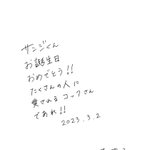 サンジくん
お誕生日
おめでとう!!
たくさんの人に
愛されるコックさん
であれ!!
2023.3.2